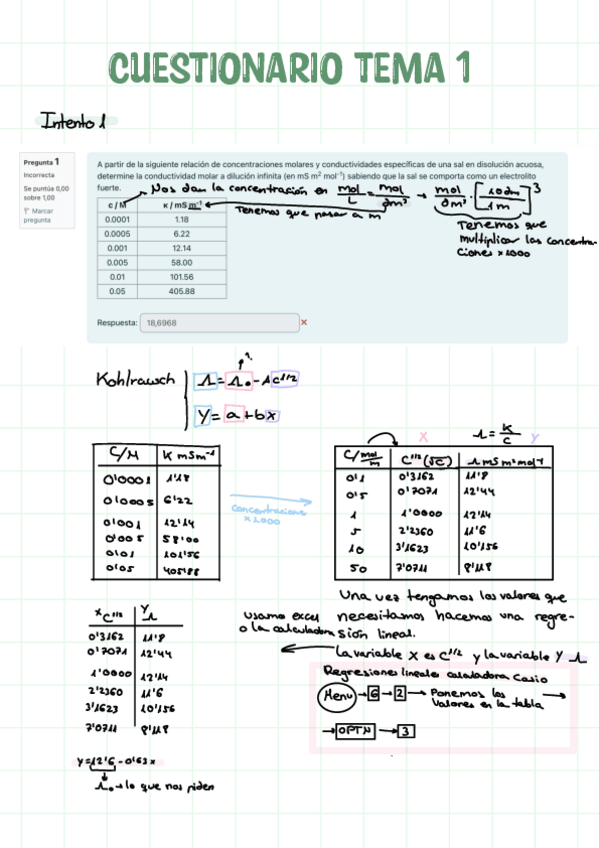 CUESTIONARIO TEMA 1
Intento 1
Pregunta 1
Incorrecta
Se puntúa 0,00
sobre 1,00
Marcar
pregunta
A partir de la siguiente relación de concentraciones molares y conductividades específicas de una sal en disolución acuosa,
determine la conductividad molar a dilución infinita (en mS m² mol⁻¹) sabiendo que la sal se comporta como un electrolito
fuerte.
Nos dan la concentración en mol/L = mol/dm³ → mol/dm³ · [10dm/1m]³
c / M κ / mS m⁻¹
Tenemos que pasar a m
0.0001 1.18
0.0005 6.22
0.001 12.14
0.005 58.00
0.01 101.56
0.05 405.88
Tenemos que
multiplicar las concentra-
ciones x 1000
Respuesta: 18,6968
Kohlrausch
Λ = Λ₀ - A c^1/2
Y = a + b x
C/M K mSm⁻¹
0'0001 1'18
0'0005 6'22
0'001 12'14
0'005 58'00
0'01 101'56
0'05 405'88
concentraciones
x 1000
X Λ = K/C Y
C/mol/m C^1/2 (√C) Λ mS m² mol⁻¹
0'1 0'3162 11'8
0'5 0'7071 12'44
1 1'0000 12'14
5 2'2360 11'6
10 3'1623 10'156
50 7'0711 8'118
Una vez tengamos los valores que
necesitamos hacemos una regre-
sión lineal.
usamos excel
o la calculadora
La variable X es C^1/2 y la variable Y Λ
X C^1/2 Y Λ
0'3162 11'8
0'7071 12'44
1'0000 12'14
2'2360 11'6
3'1623 10'156
7'0711 8'118
Regresiones lineales calculadora Casio
Menu → 6 → 2 → Ponemos los →
valores en la tabla
→ OPTN → 3
y = 12'6 - 0'63x
Λ₀ → lo que nos piden